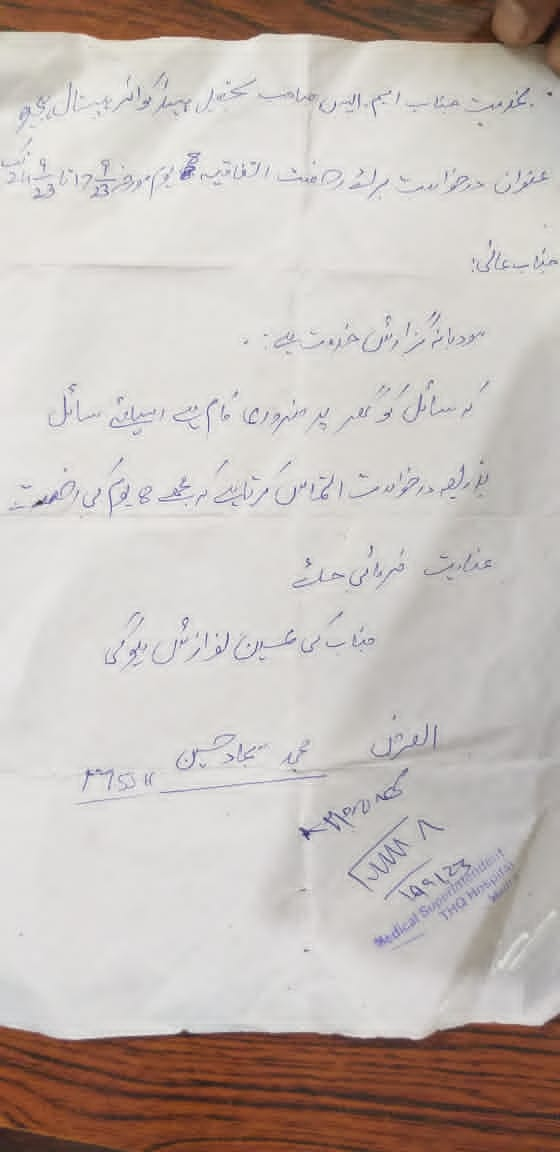 بخدمت جناب ایم۔ایس صاحب تحصیل ہیڈ کوائٹر ہسپتال
عنوان درخواست برائے رخصت اتفاقیہ 8 یوم مورخہ 17/9/23 تا 24/9/23 تک
جناب عالی!
مودبانہ گزارش خدمت ہے:۔
کہ سائل کو گھر پر ضروری کام ہے اسلئے سائل
بذریعہ درخواست التماس کرتا ہے کہ مجھے 8 یوم کی رخصت
عنایت فرمائی جائے
جناب کی عین نوازش ہوگی
العرض محمد سجاد حسین
Medical Superintendent
THQ Hospital